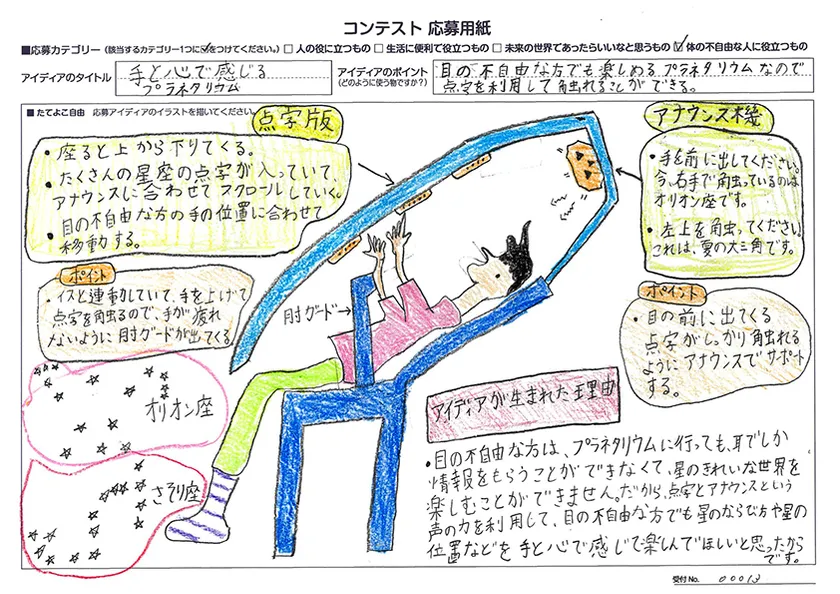 コンテスト 応募用紙
■応募カテゴリー（該当するカテゴリー1つに✓をつけてください。）□ 人の役に立つもの □ 生活に便利で役立つもの □ 未来の世界であったらいいなと思うもの ☑ 体の不自由な人に役立つもの
アイディアのタイトル
手と心で感じる
プラネタリウム
アイディアのポイント
（どのように使う物ですか？）
目の不自由な方でも楽しめるプラネタリウムなので
点字を利用して触れることができる。
■ たてよこ自由 応募アイディアのイラストを描いてください。
点字版
・座ると上から下りてくる。
・たくさんの星座の点字が入っていて、
アナウンスに合わせてスクロールしていく。
・目の不自由な方の手の位置に合わせて
移動する。
アナウンス機
・手を前に出してください。
今、右手で触っているのは
オリオン座です。
・左上を触ってください。
これは、夏の大三角です。
ポイント
・イスと連動していて、手を上げて
点字を触るので、手が疲れ
ないように肘ガードが出てくる
肘ガード
ポイント
・目の前に出てくる
点字がしっかり触れる
ようにアナウンスでサポート
する。
オリオン座
さそり座
アイディアが生まれた理由
・目の不自由な方は、プラネタリウムに行っても、耳でしか
情報をもらうことができなくて、星のきれいな世界を
楽しむことができません。だから、点字とアナウンスという
声の力を利用して、目の不自由な方でも星のならび方や星の
位置などを手と心で感じて楽しんでほしいと思ったから
です。
受付No. 00013